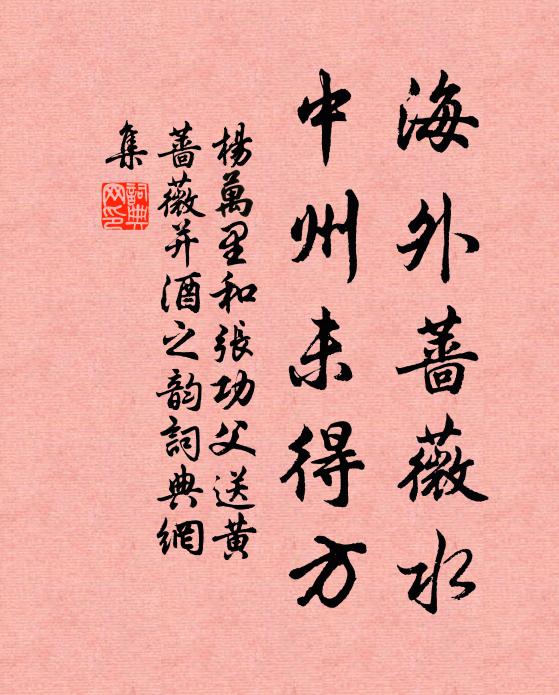 海外薔薇水
中州未得方
楊萬里和張功父送黃
薔薇并酒之韵詞典網
集
詞典
网印